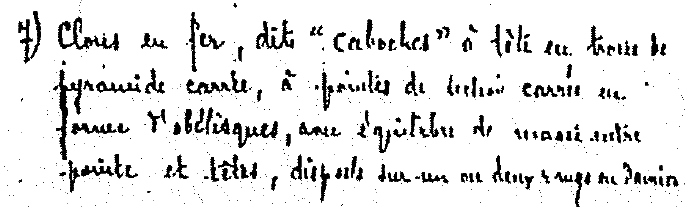 7) Clous en fer, dits "caboches" à tête en tronc de
pyramide carrée, à pointes de section carrée en
forme d'obélisques, avec équilibre de masse entre
pointe et têtes, disposés sur un ou deux rangs ou